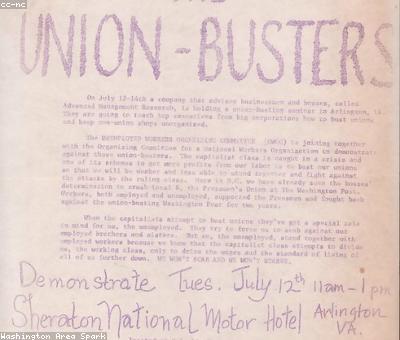 cc-nc
UNION-BUSTERS
On July 12-14th a company that advises businessmen and bosses, called
Advanced Management Research, is holding a union-busting seminar in Arlington, VA.
They are going to teach top executives from big corporations how to bust unions
and keep non-union shops unorganized.
The UNEMPLOYED WORKERS ORGANIZING COMMITTEE (UWOC) is joining together
with the Organizing Committee for a National Workers Organization to demonstrate
against these union-busters. The capitalist class is caught in a crisis and
one of its schemes to get more profits from our labor is to bust our unions
so that we will be weaker and less able to stand together and fight against
the attacks by the ruling class. Here in D.C. we have already seen the bosses'
determination to crush local 6, the Pressmen's Union at The Washington Post.
Workers, both employed and unemployed, supported the Pressmen and fought back
against the union-busting Washington Post for two years.
When the capitalists attempt to bust unions they've got a special role
in mind for us, the unemployed. They try to force us to scab against our
employed brothers and sisters. But we, the unemployed, stand together with
employed workers because we know that the capitalist class attempts to divide
us, the working class, only to drive the wages and the standard of living of
all of us further down. WE WON'T SCAB AND WE WON'T STARVE.
Demonstrate Tues. July 12th 11am-1pm
Sheraton National Motor Hotel Arlington
VA.
Washington Area Spark